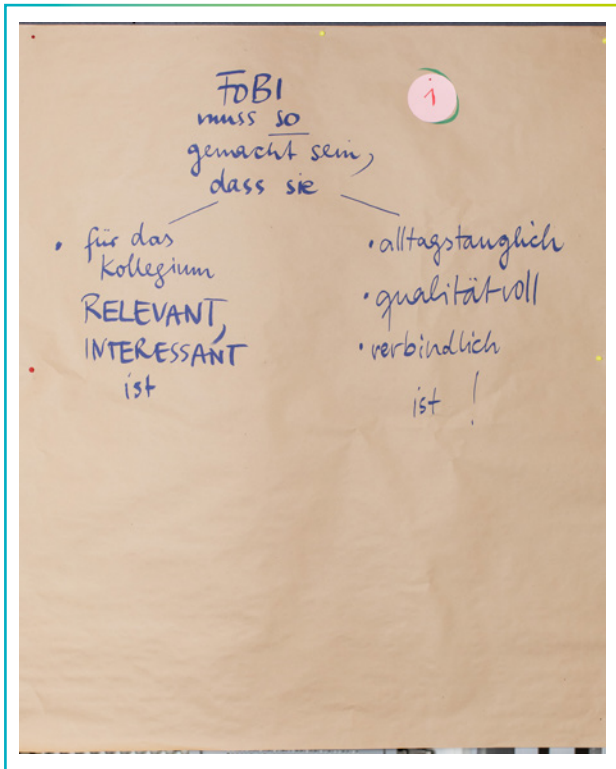 FOBI
muss so
gemacht sein,
dass sie
1
• für das
Kollegium
RELEVANT,
INTERESSANT
ist
• alltagstauglich
• qualitätvoll
• verbindlich
ist !